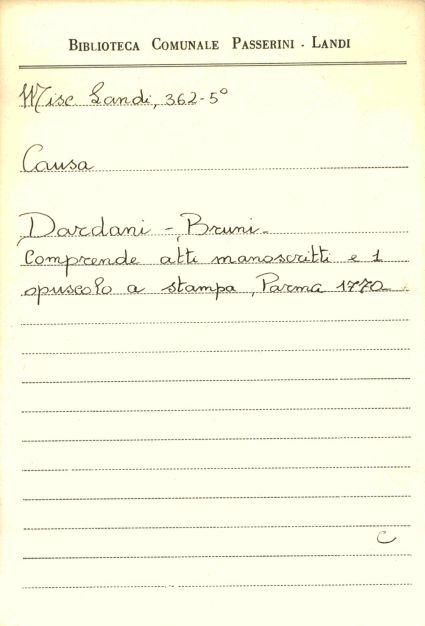 BIBLIOTECA COMUNALE PASSERINI - LANDI
Misc Landi, 362-5°
Causa
Dardani - Bruni -
Comprende atti manoscritti e 1
opuscolo a stampa, Parma 1770
C